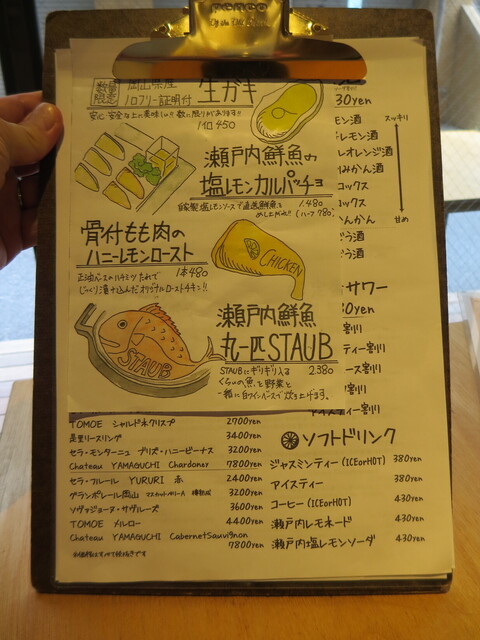 penco
数量限定
岡山県産
ノロフリー証明付
生ガキ
1コ 450
瀬戸内鮮魚の
塩レモンカルパッチョ
自家製塩レモンソースで直送鮮魚を
めし上がれ!! (ハーフ 780)
1.480
骨付もも肉の
ハニーレモンロースト
1本480
じっくり漬け込んだオリジナルローストチキン!!
CHICKEN
瀬戸内鮮魚
丸一匹STAUB
STAUBにギリギリ入る 2.380
くらいの魚と野菜と
一緒に白ワインベースで炊き上げます。
STAUB
30yen
モン酒
レモン酒
レオレンジ酒
みかん酒
コックス
コックス
んかん
う酒
う酒
スッキリ
甘め
サワー
0yen
割り
ティー割り
ース割り
割り
アイスティー割り
TOMOE シャルドネクリスプ 2700yen
リースリング 3400yen
セラ・モンターニュ プリズ・ハニービーナス 3200yen
Chateau YAMAGUCHI Chardonay 7800yen
セラ・フルール YURURI 赤 2400yen
グランポレール岡山 マスカットベリーA 樽熟成 3200yen
ソヴァジョーヌ・サヴルーズ 3600yen
TOMOE メルロー 4400yen
Chateau YAMAGUCHI CabernetSauvignon
7800yen
※価格はすべて税抜きです
ソフトドリンク
ジャスミンティー(ICEorHOT) 380yen
アイスティー 380yen
コーヒー(ICEorHOT) 430yen
瀬戸内レモネード 430yen
瀬戸内塩レモンソーダ 430yen